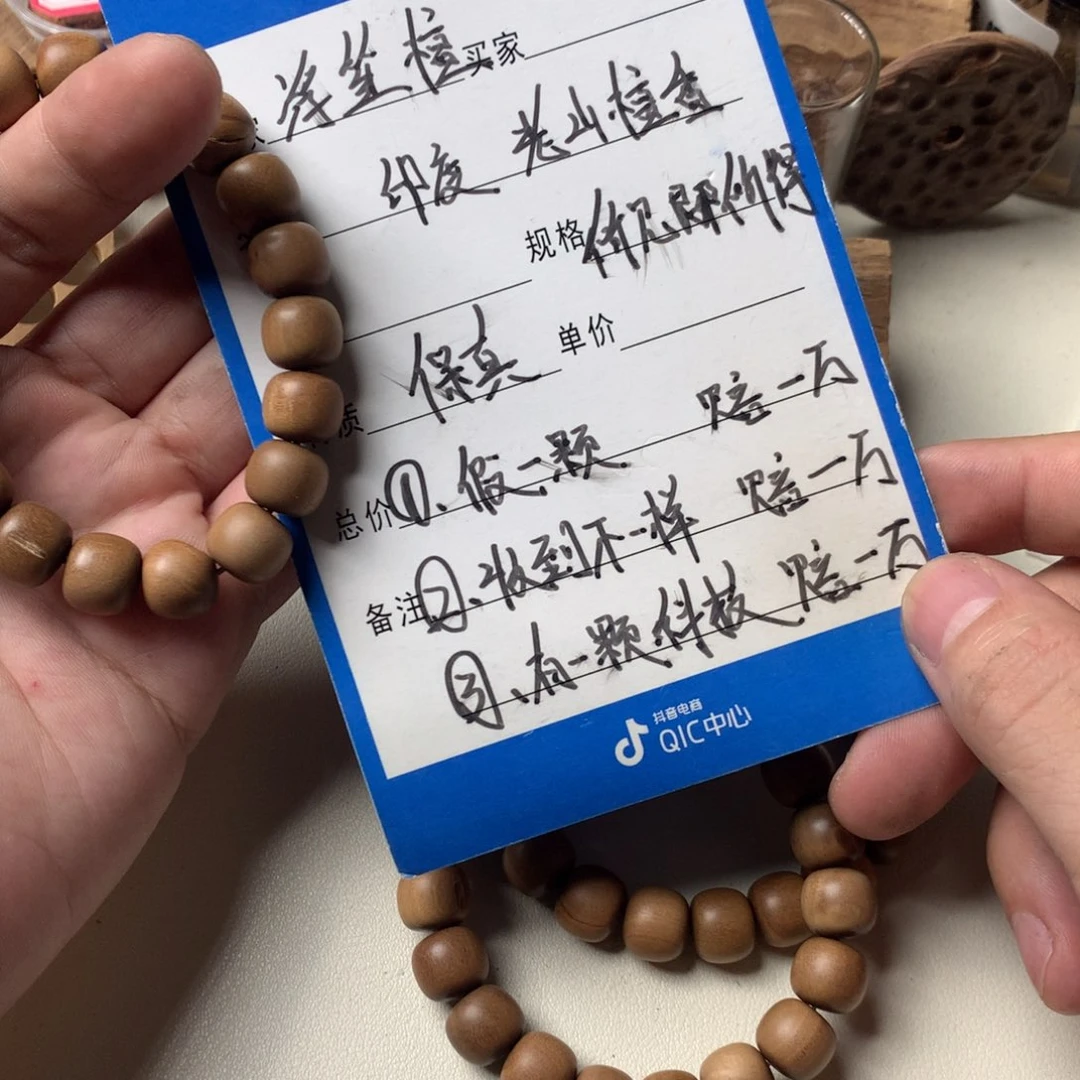 浮笙檀 买家
印度 老山檀香
规格 所见即所得
质 保真 单价
总价 ①、假一颗 赔一万
备注 ②、收到不一样 赔一万
③、有一颗科技 赔一万
抖音电商
QIC中心